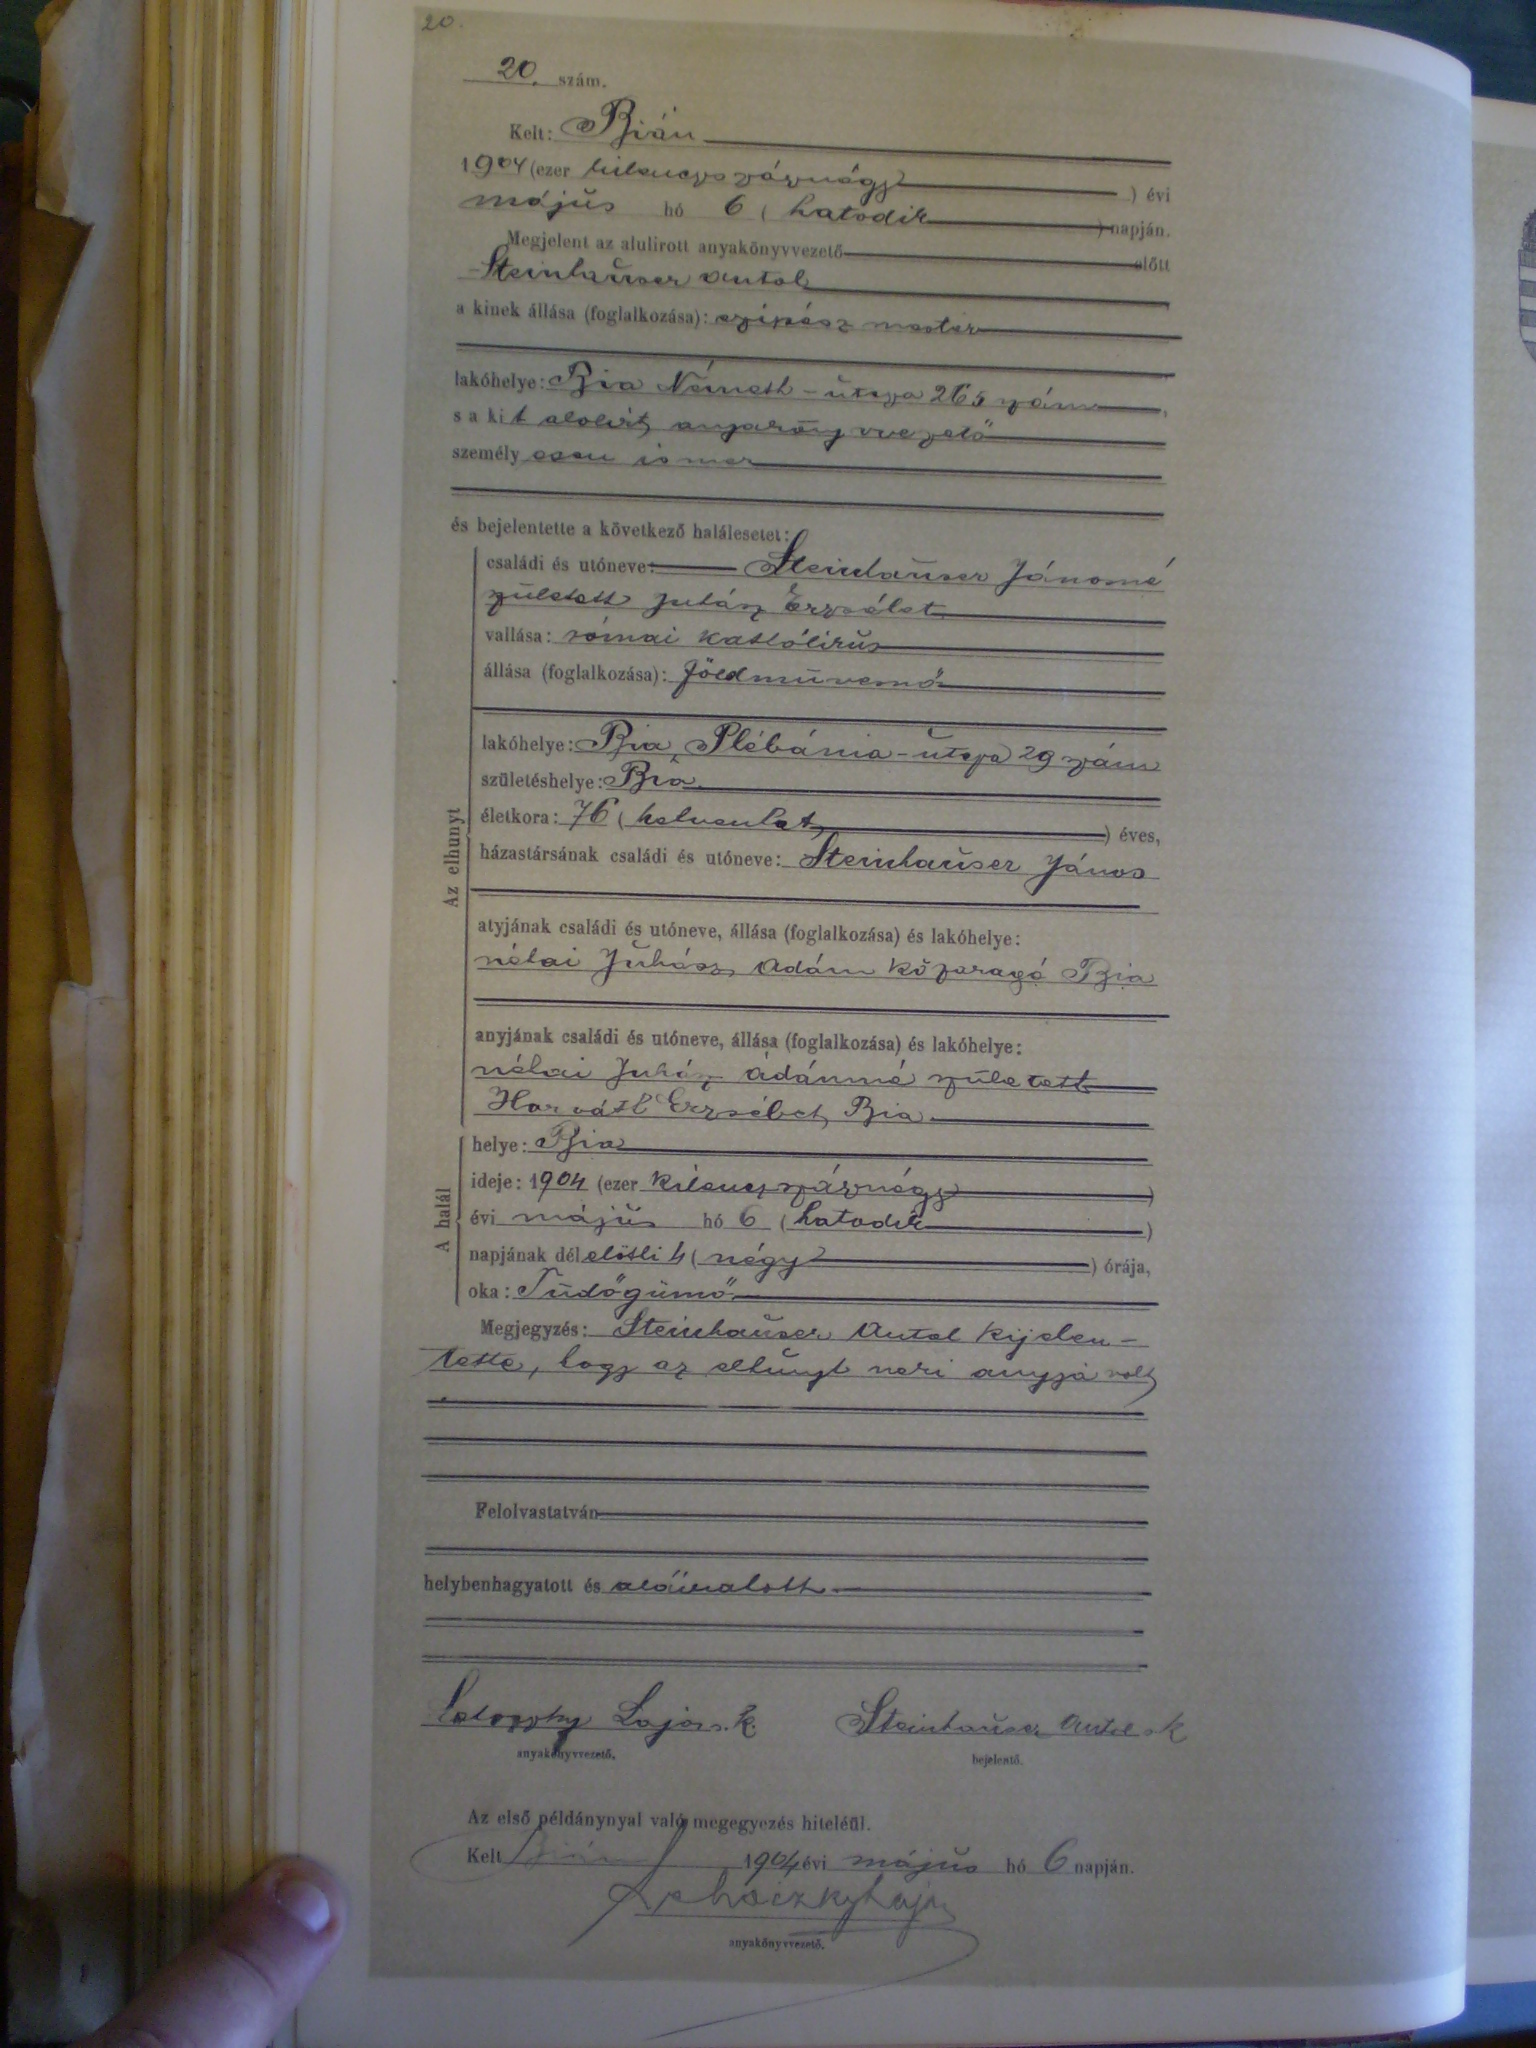 20.
20. szám.
Kelt: Bián
1904 (ezer kilenczszáznégy) évi
május hó 6 (hatodik) napján.
Megjelent az alulirott anyakönyvvezető előtt
Steinhauser Antal
a kinek állása (foglalkozása): czipész mester
lakóhelye: Bia Németh-utcza 265 szám,
s a kit alolirt anyakönyvvezető
személyesen ismer
és bejelentette a következő halálesetet:
családi és utóneve: Steinhauser Jánosné
született Juhász Erzsébet
vallása: római katholikus
állása (foglalkozása): földművesnő
lakóhelye: Bia, Plébánia-utcza 29 szám
születéshelye: Bia
életkora: 76 (hetvenhat) éves,
házastársának családi és utóneve: Steinhauser János
atyjának családi és utóneve, állása (foglalkozása) és lakóhelye:
néhai Juhász Ádám kőfaragó Bia
anyjának családi és utóneve, állása (foglalkozása) és lakóhelye:
néhai Juhász Ádámné született
Horváth Erzsébet, Bia
Az elhunyt
helye: Bia
ideje: 1904 (ezer kilenczszáznégy)
évi május hó 6 (hatodik)
napjának délelőtti 4 (négy) órája,
oka: Tüdőgümő
A halál
Megjegyzés: Steinhauser Antal kijelen-
tette, hogy az elhunyt neki anyja volt
Felolvastatván
helybenhagyatott és aláiratott
Lajos s. k. Steinhauser Antal s k
anyakönyvvezető. bejelentő.
Az első példánynyal való megegyezés hiteléül.
Kelt Bián 1904 évi május hó 6 napján.
anyakönyvvezető.